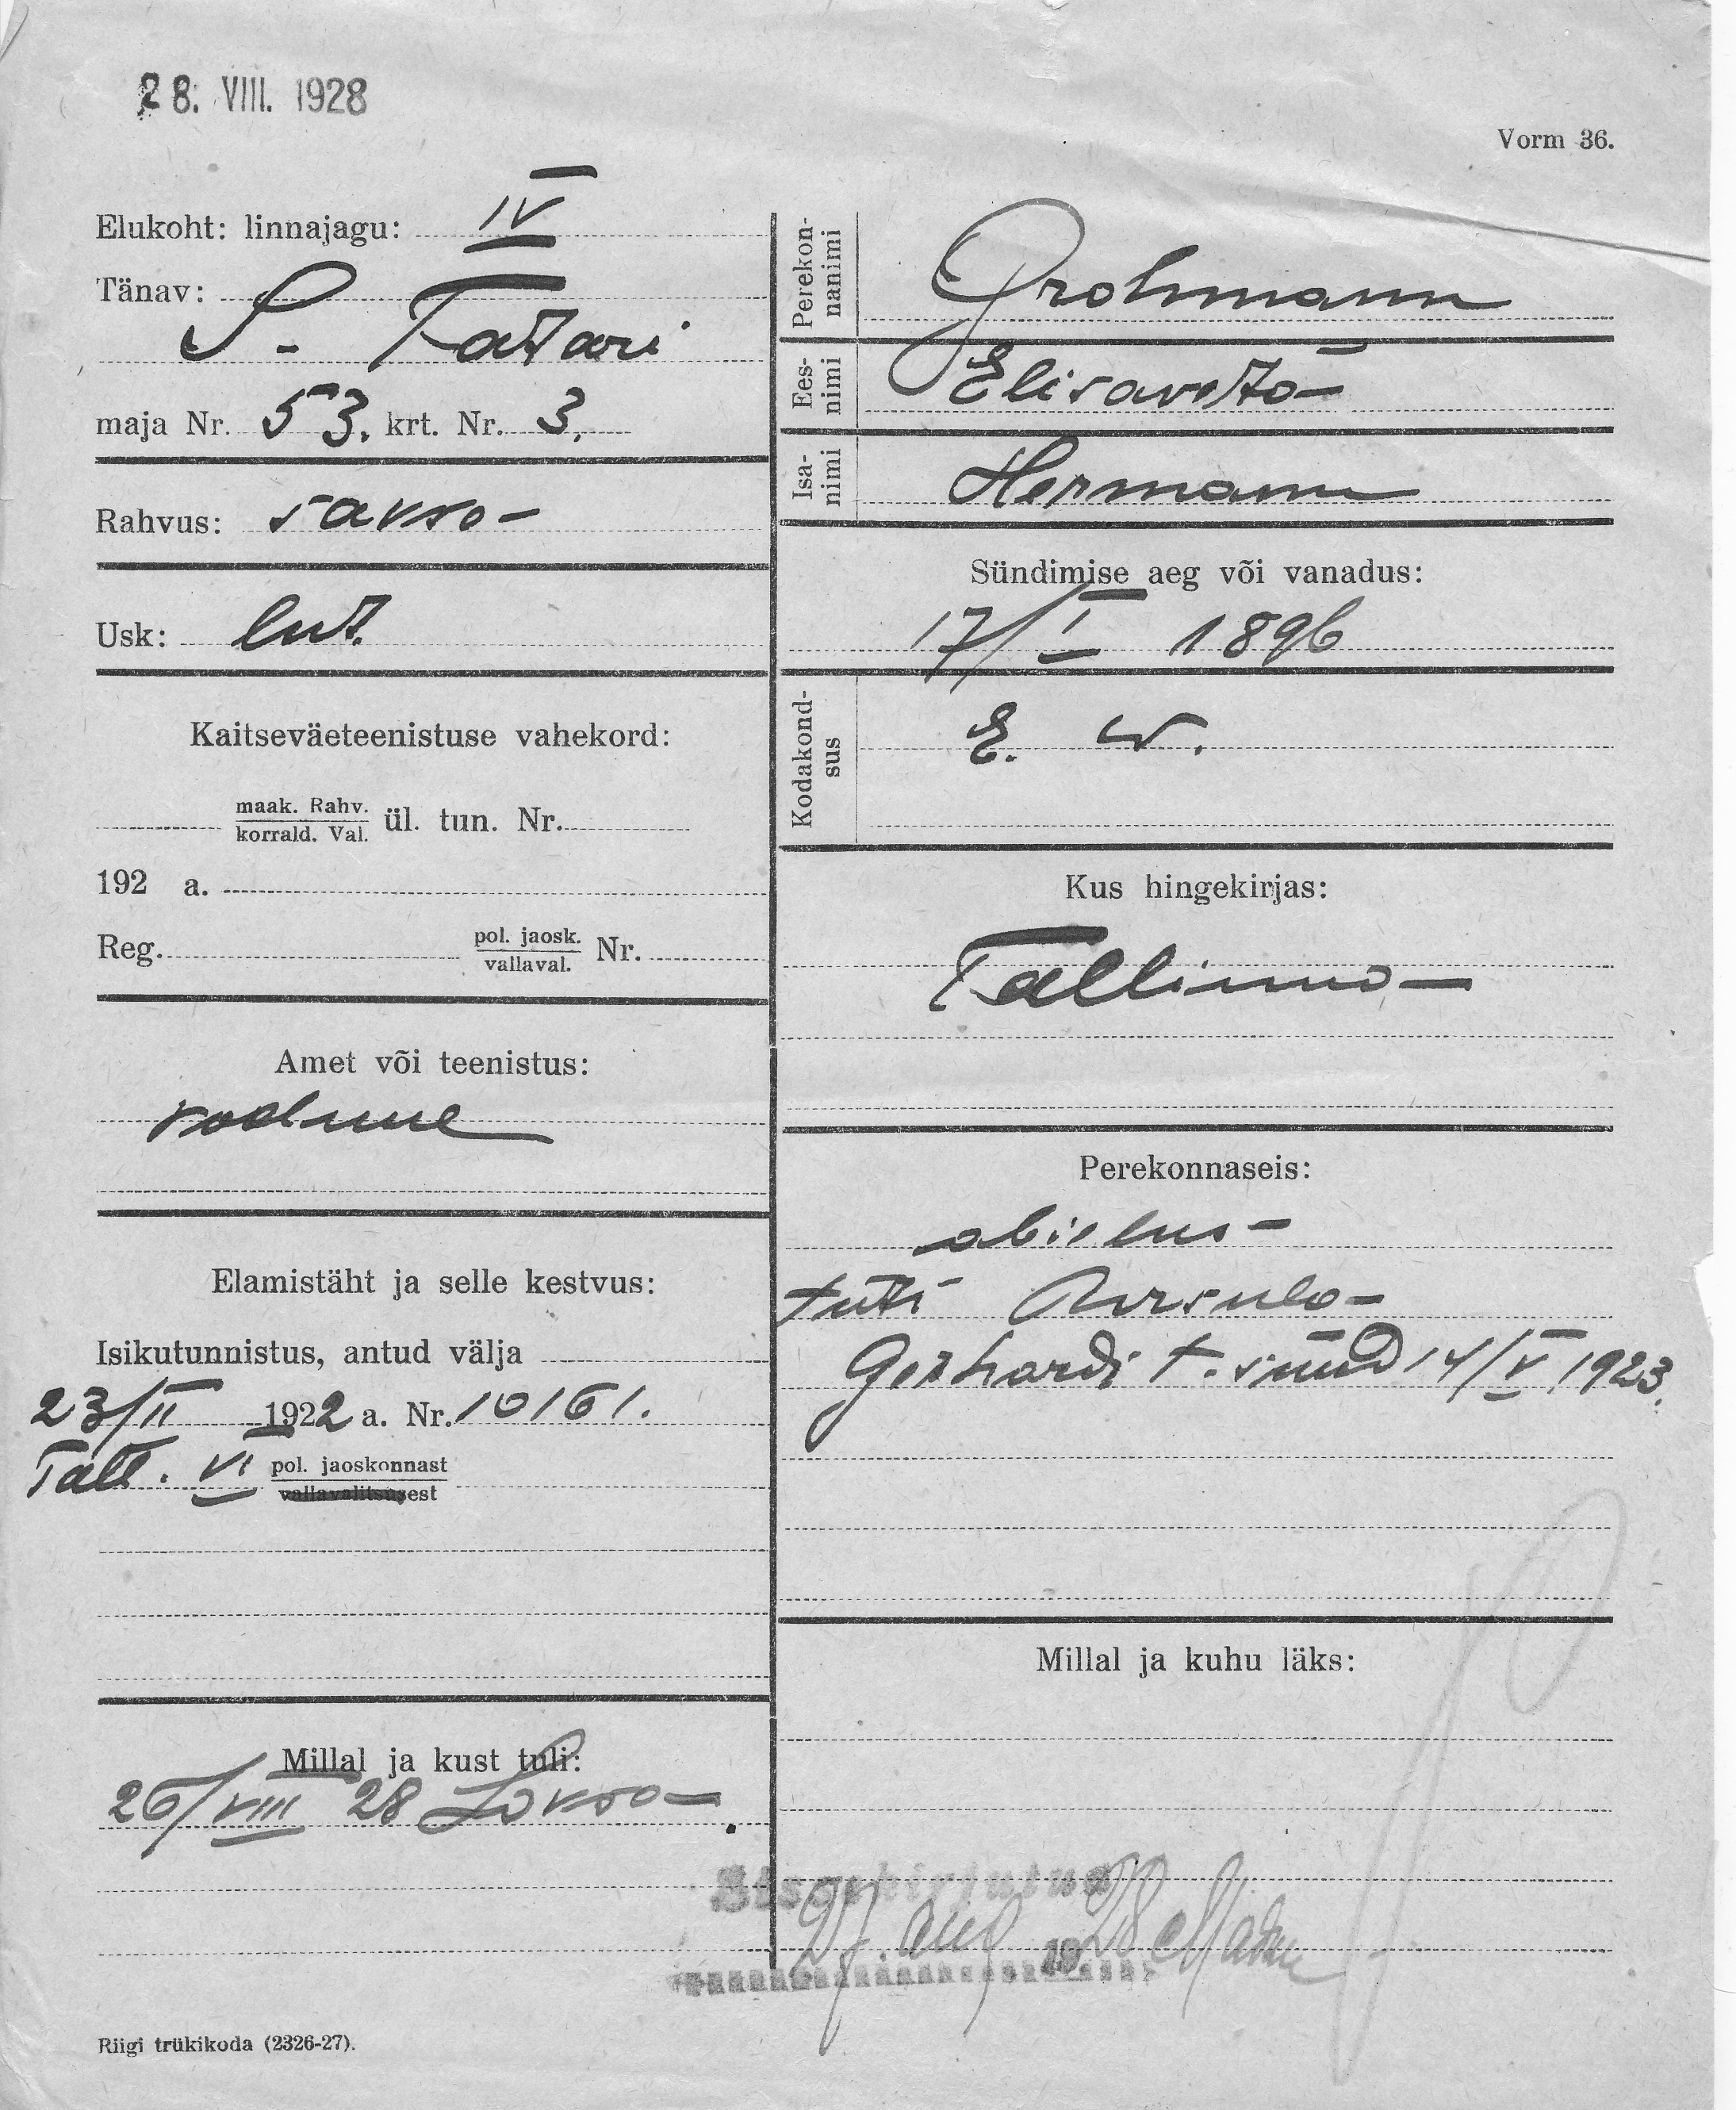 28. VIII. 1928
Vorm 36.
Elukoht: linnajagu: IV
Tänav:
S. Tatari
maja Nr. 53. krt. Nr. 3.
Rahvus: saksa
Usk: lut.
Kaitseväeteenistuse vahekord:
maak. Rahv.
korrald. Val. ül. tun. Nr.
192 a.
Reg. pol. jaosk.
vallaval. Nr.
Amet või teenistus:
Elamistäht ja selle kestvus:
Isikutunnistus, antud välja
23/II 1922 a. Nr. 10161.
Tall. VI pol. jaoskonnast
vallavalitsusest
Millal ja kust tuli:
26/VIII 28 Loksa
Perekon-
nanimi
Grohmann
Ees-
nimi
Elisaveta
Isa-
nimi
Hermann
Sündimise aeg või vanadus:
17/I 1896
Kodakond-
sus
E. W.
Kus hingekirjas:
Tallinna
Perekonnaseis:
abielus
tütr Ursula
Gerhardi t. sünd 14/V 1923.
Millal ja kuhu läks:
Sissekirjutud
27. aug 1928
Riigi trükikoda (2326-27).